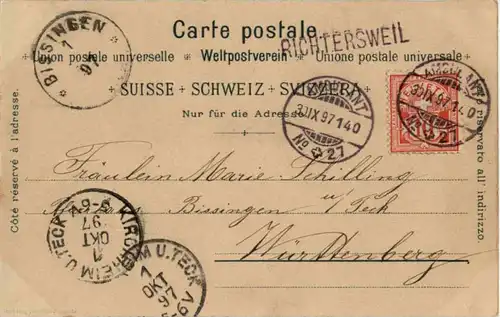 Carte postale
RICHTERSWEIL
Union postale universelle · Weltpostverein · Unione postale universale
SUISSE · SCHWEIZ · SVIZZERA
Nur für die Adresse.
Côté réservé à l'adresse.
riservato all' indirizzo.
BISSINGEN
1
97
AMBULANT
3.IX 97 140
No 21
AMBULANT
3.IX 97 140
No 21
Fräulein Marie Schilling
Bissingen u/ Teck
Württemberg
KIRCHHEIM U.TECK
1
OKT
97
5-6V
KIRCHHEIM U.TECK
1
OKT
97
5-6V